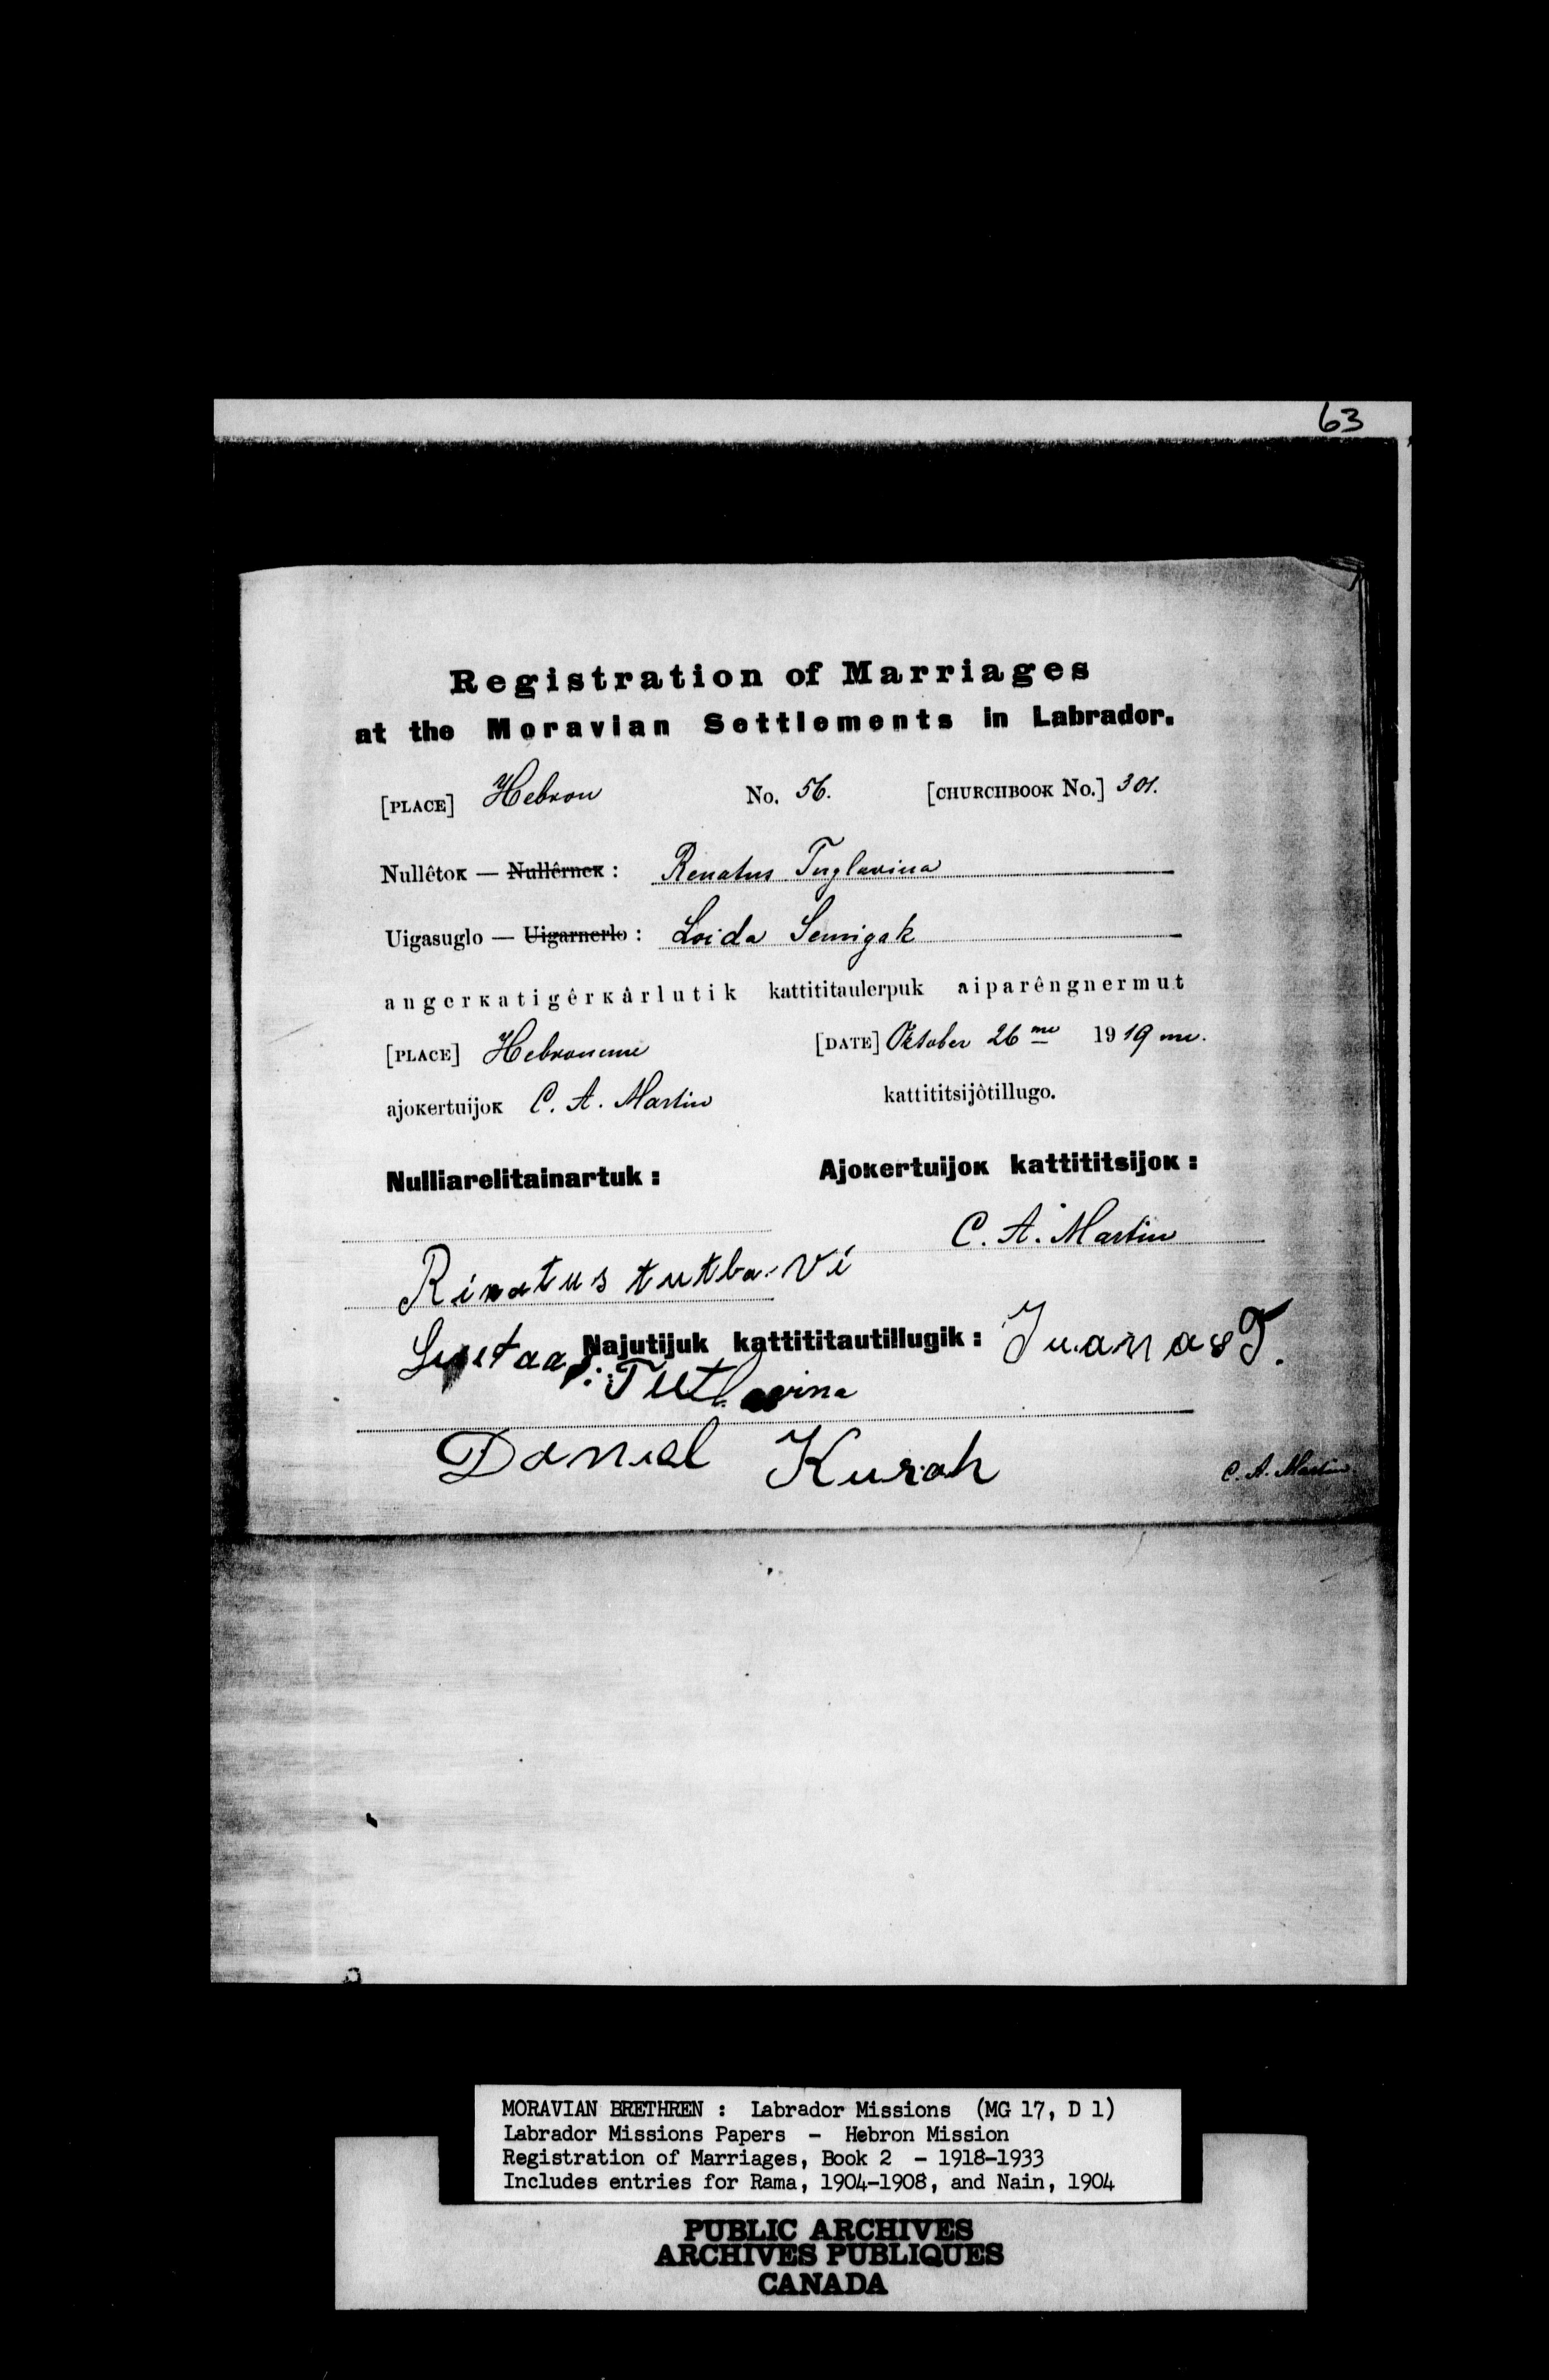 63
Registration of Marriages
at the Moravian Settlements in Labrador.
[PLACE] Hebron No. 56. [CHURCHBOOK No.] 301.
Nullêtoĸ — Nullêrneĸ : Renatus Tuglavina
Uigasuglo — Uigarnerlo : Loida Semigak
angerĸatigêrĸârlutik kattititaulerpuk aiparêngnermut
[PLACE] Hebroneme [DATE] Oktober 26 me 1919 me.
ajoĸertuijoĸ C. A. Martin kattititsijôtillugo.
Nulliarelitainartuk : Ajoĸertuijoĸ kattititsijoĸ :
C. A. Martin
Rinatus tutla vi
Najutijuk kattititautillugik : Juanas T.
Daniel Kurah
C. A. Martin
MORAVIAN BRETHREN : Labrador Missions (MG 17, D 1)
Labrador Missions Papers - Hebron Mission
Registration of Marriages, Book 2 - 1918-1933
Includes entries for Rama, 1904-1908, and Nain, 1904
PUBLIC ARCHIVES
ARCHIVES PUBLIQUES
CANADA